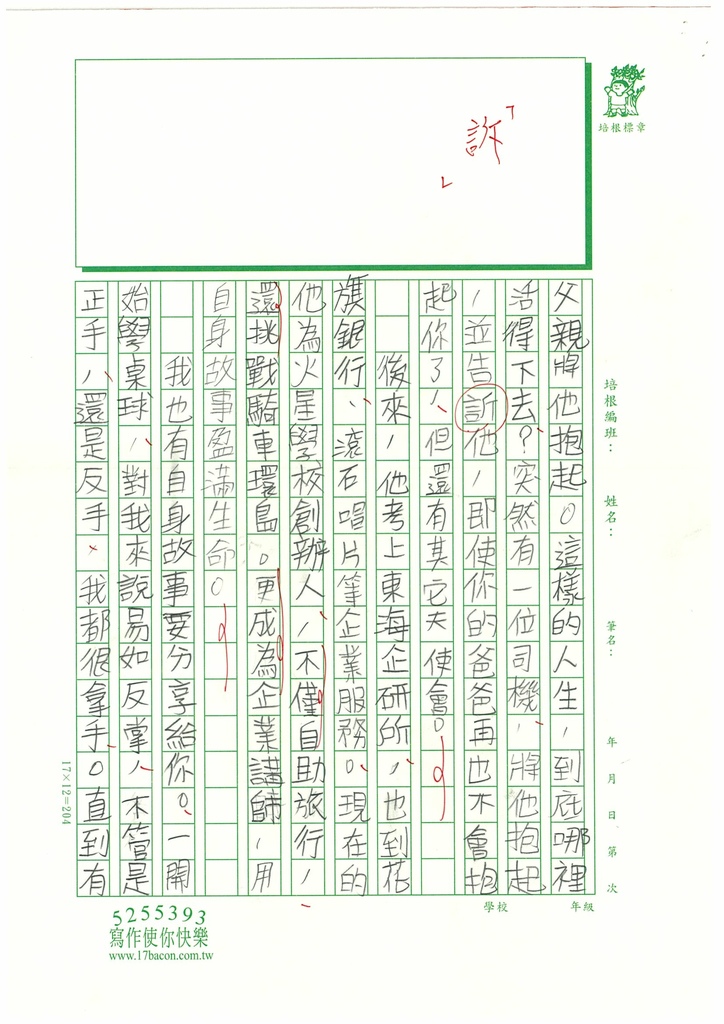 「訴」
培根標章
培根編班：
姓名：
筆名：
年 月 日 第 次
學校
年級
父親將他抱起。這樣的人生，到底哪裡
活得下去？突然有一位司機，將他抱起
，並告訴他，即使你的爸爸再也不會抱
起你了，但還有其它天使會。
後來，他考上東海企研所，也到花
旗銀行、滾石唱片等企業服務。現在的
他為火星學校創辦人，不僅自助旅行，
還挑戰騎車環島。更成為企業講師，用
自身故事盈滿生命。
我也有自身故事要分享給你。一開
始學桌球，對我來說易如反掌，不管是
正手，還是反手、我都很拿手。直到有
17×12=204
5255393
寫作使你快樂
www.17bacon.com.tw